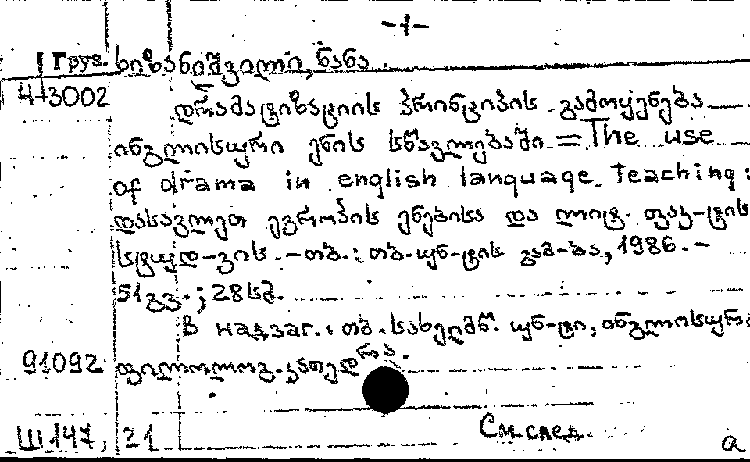 -1-
Груз. ხიზანიშვილი, ნანა.
4-3002 დრამატიზაციის პრინციპის გამოყენება
ინგლისური ენის სწავლებაში = The use
of drama in english language teaching:
დასავლეთ ევროპის ენებისა და ლიტ. ფაკ-ტის
სტუდ-ვის. - თბ.: თბ. უნ-ტის გამ-ბა, 1986. -
51 გვ.; 28 სმ.
В надзаг.: თბ. სახელმწ. უნ-ტი, ინგლისური
91092 ფილოლოგ. კათედრა.
Ш 147, 21 См. след. a